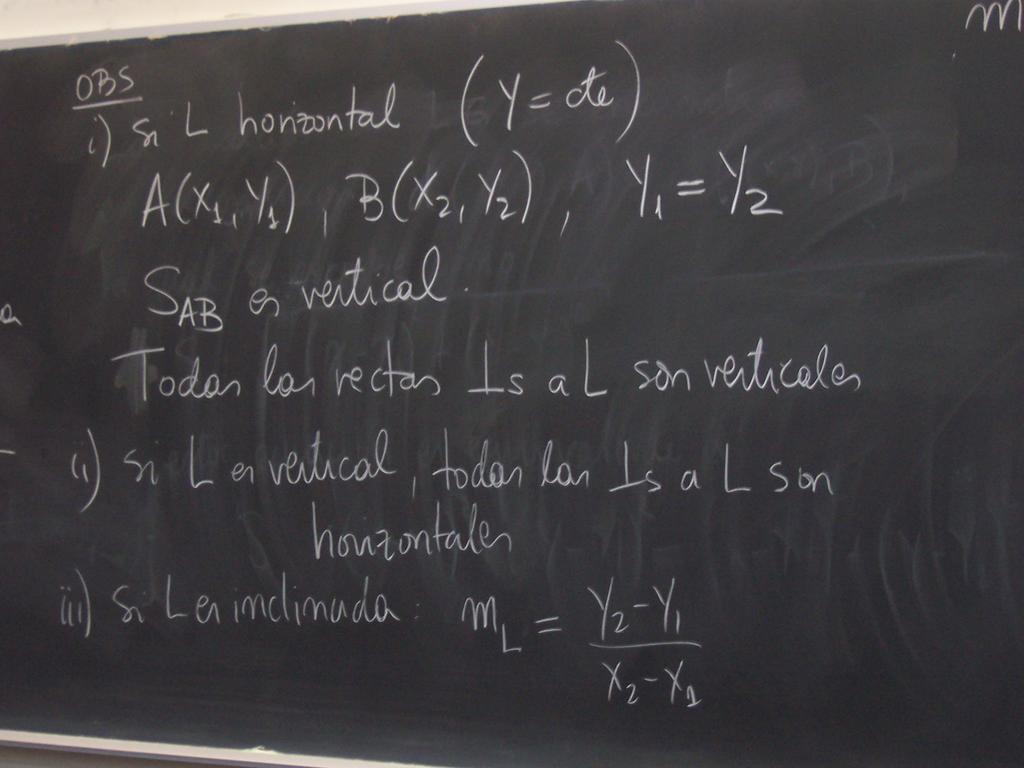 OBS
i) si L horizontal (Y = cte)
A(X₁, Y₁), B(X₂, Y₂), Y₁ = Y₂
S_AB es vertical.
Todas las rectas ⊥s a L son verticales
ii) si L es vertical, todas las ⊥s a L son
horizontales
iii) si L es inclinada: m_L = (Y₂ - Y₁) / (X₂ - X₁)
m
a